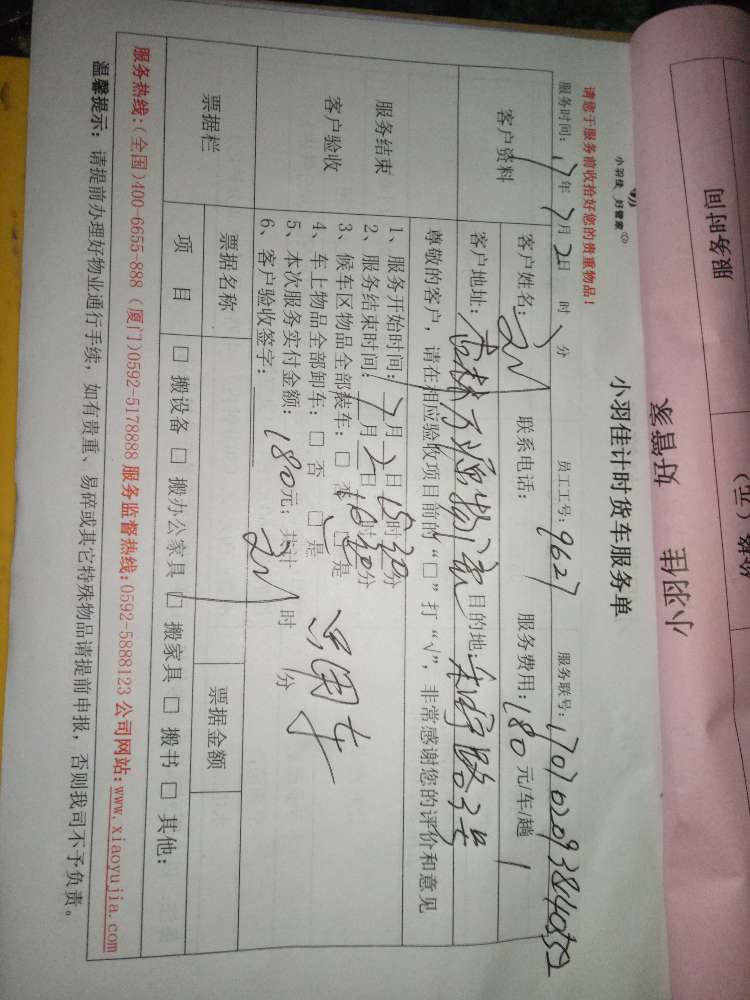 服务时间
好管家
小羽佳
小羽佳 好管家
小羽佳计时货车服务单
请您于服务前收拾好您的贵重物品!
服务时间: 17年7月2日 时 分 员工工号: 9627 服务联号:
客户资料
客户姓名: 联系电话: 服务费用: 180元/车/趟
客户地址: 目的地:
尊敬的客户, 请在相应验收项目前的“□”打“√”, 非常感谢您的评价和意见
服务结束
客户验收
1、服务开始时间: 7月2日15时30分
2、服务结束时间: 7月2日 时30分
3、候车区物品全部装车: □ 否 □ 是
4、车上物品全部卸车: □ 否 □ 是
5、本次服务实付金额: 180元; 共计 时 分
6、客户验收签字:
只用车
票据栏
票据名称 票据金额
项 目 □ 搬设备 □ 搬办公家具 □ 搬家具 □ 搬书 □ 其他:
服务热线:(全国)400-6655-888 (厦门)0592-5178888 服务监督热线:0592-5888123 公司网站:www.xiaoyujia.com
温馨提示: 请提前办理好物业通行手续, 如有贵重、易碎或其它特殊物品请提前申报, 否则我司不予负责。